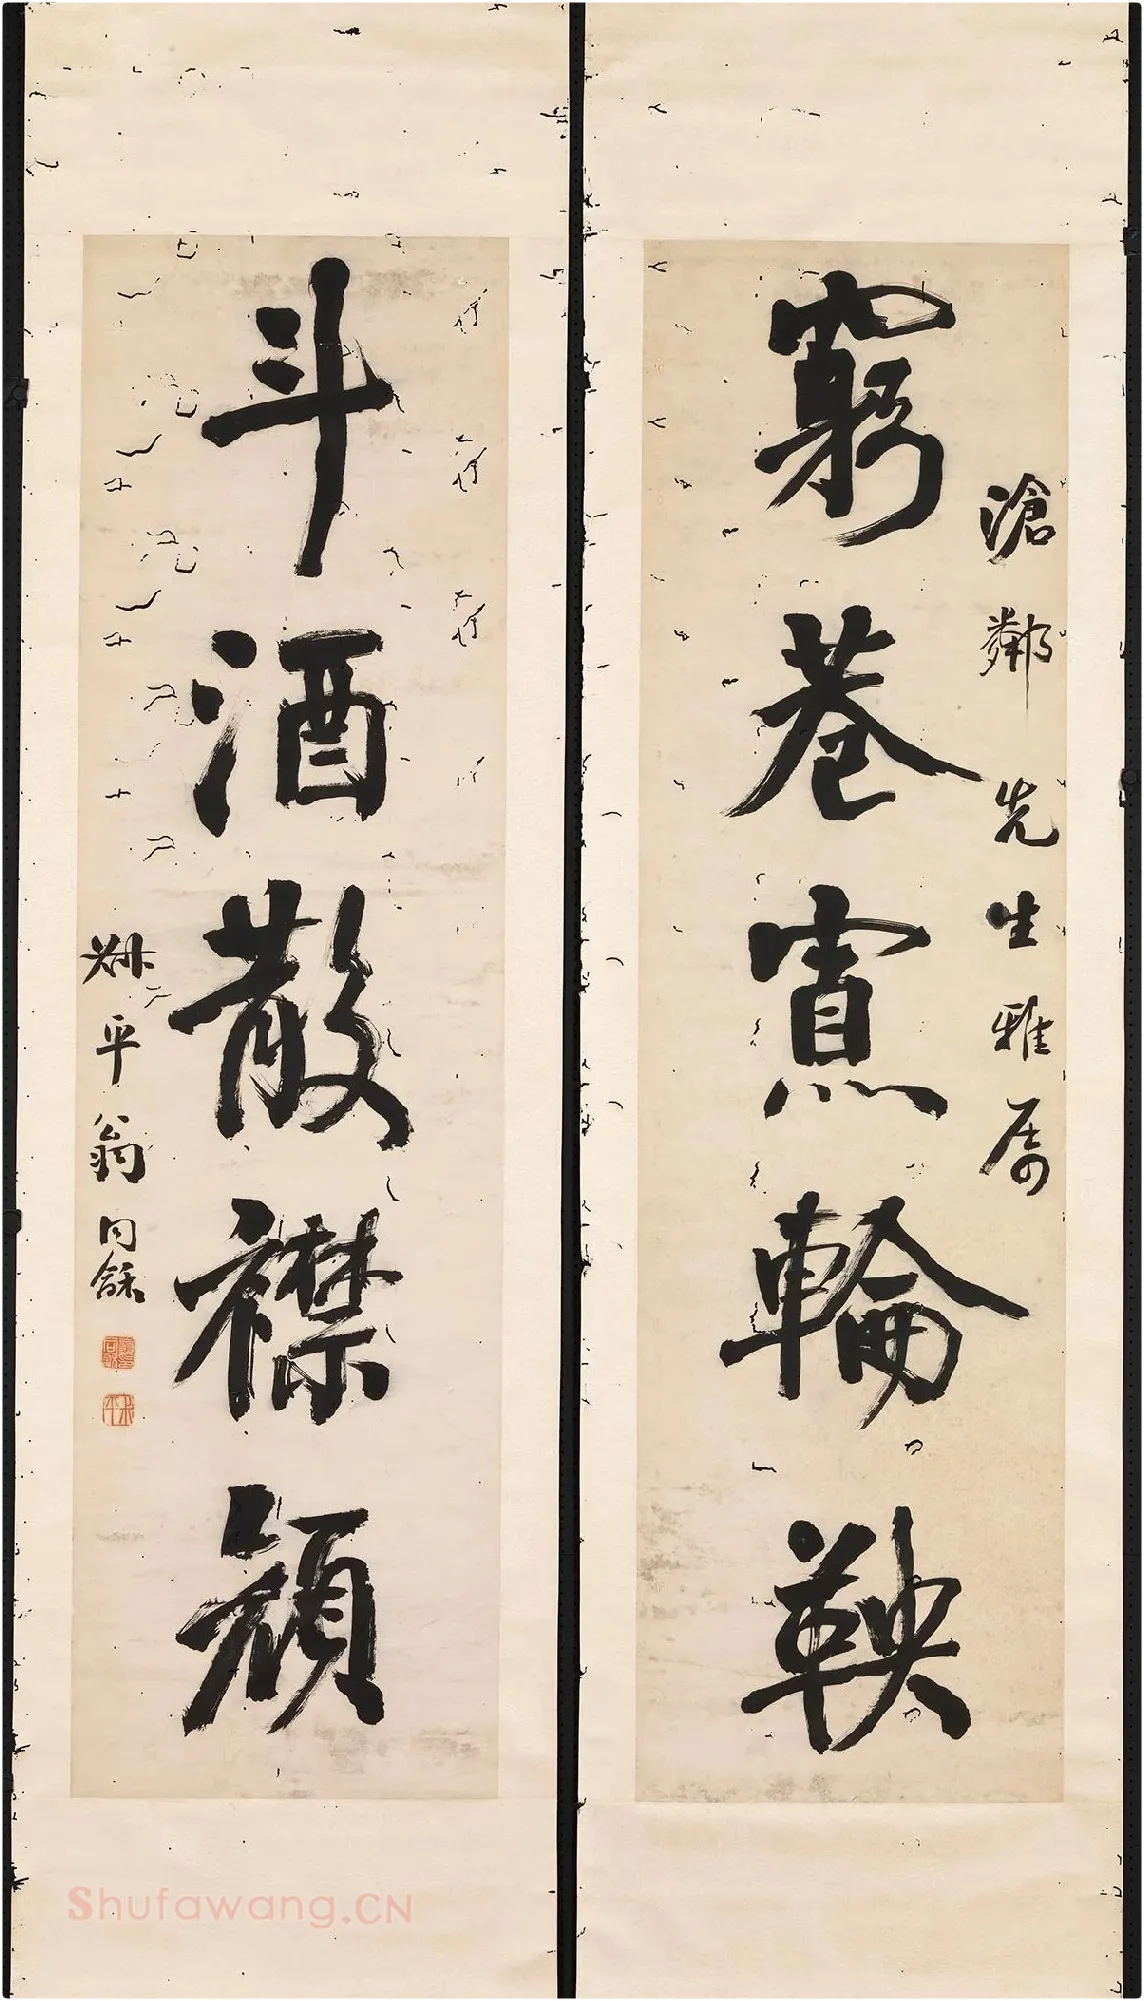 滄鄰先生雅属
窮巷寡輪鞅
斗酒散襟顏
叔平翁同龢
叔平
Shufawang.CN